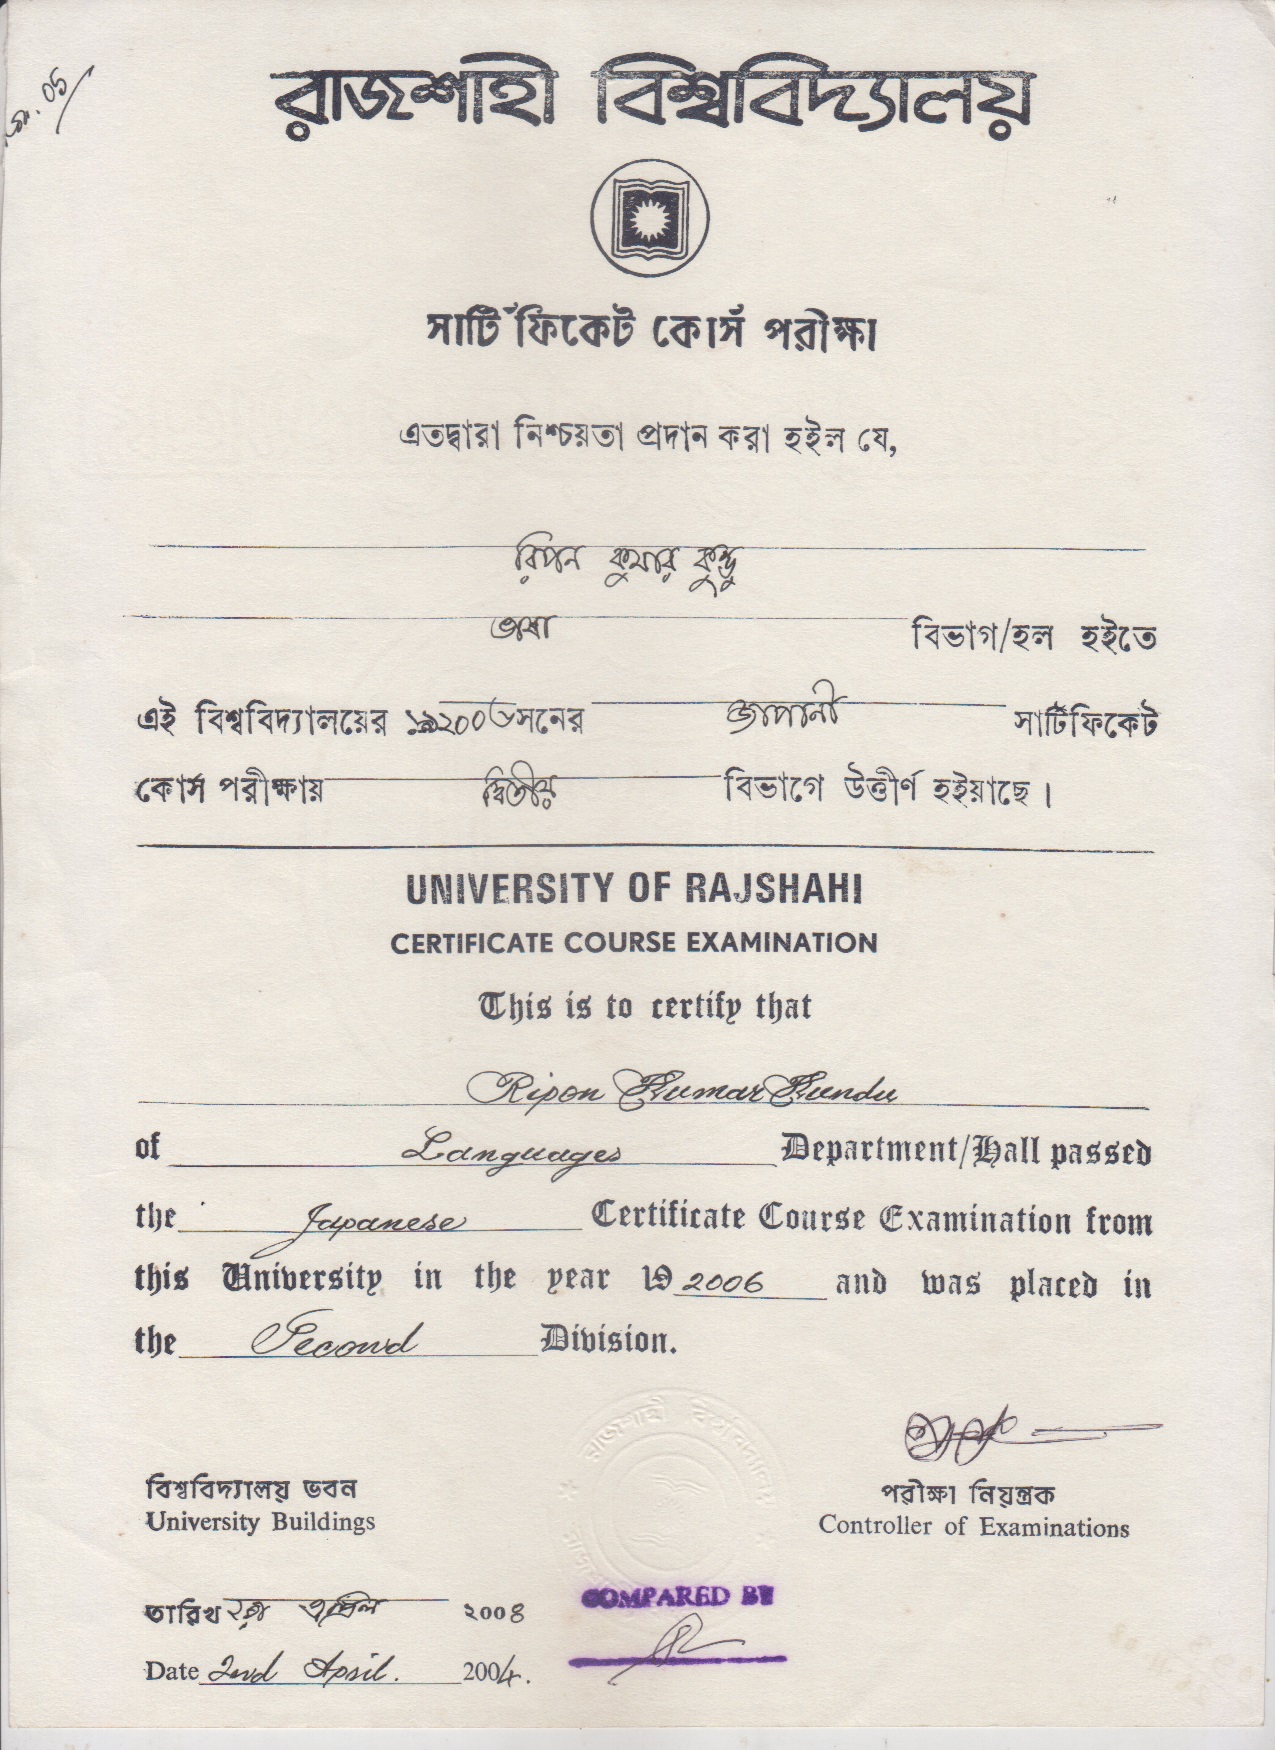 রাজশাহী বিশ্ববিদ্যালয়
সার্টিফিকেট কোর্স পরীক্ষা
এতদ্বারা নিশ্চয়তা প্রদান করা হইল যে,
রিপন কুমার কুন্ডু
ভাষা বিভাগ/হল হইতে
এই বিশ্ববিদ্যালয়ের ১৯২০০৩ সনের জাপানী সার্টিফিকেট
কোর্স পরীক্ষায় দ্বিতীয় বিভাগে উত্তীর্ণ হইয়াছে।
UNIVERSITY OF RAJSHAHI
CERTIFICATE COURSE EXAMINATION
This is to certify that
Ripon Kumar Kundu
of Languages Department/Hall passed
the Japanese Certificate Course Examination from
this University in the year 19 2006 and was placed in
the Second Division.
রাজশাহী বিশ্ববিদ্যালয়
বিশ্ববিদ্যালয় ভবন
University Buildings
পরীক্ষা নিয়ন্ত্রক
Controller of Examinations
COMPARED BY
তারিখ ২রা এপ্রিল ২০০৪
Date 2nd April. 2004.